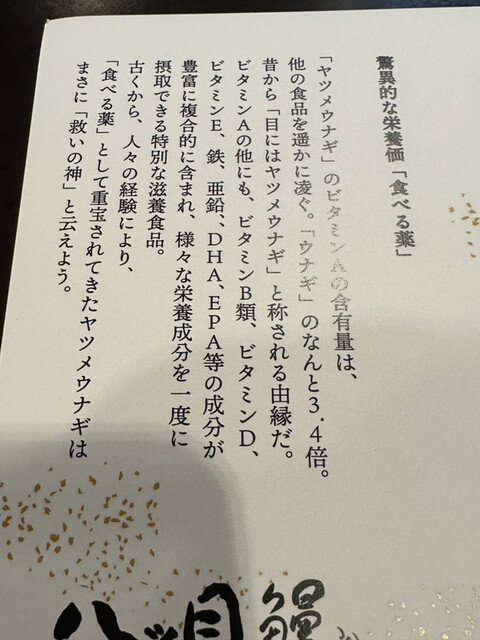 驚異的な栄養価「食べる薬」
「ヤツメウナギ」のビタミンAの含有量は、
他の食品を遥かに凌ぐ。「ウナギ」のなんと3.4倍。
昔から「目にはヤツメウナギ」と称される由縁だ。
ビタミンAの他にも、ビタミンB類、ビタミンD、
ビタミンE、鉄、亜鉛、、DHA、EPA等の成分が
豊富に複合的に含まれ、様々な栄養成分を一度に
摂取できる特別な滋養食品。
古くから、人々の経験により、
「食べる薬」として重宝されてきたヤツメウナギは
まさに「救いの神」と云えよう。
八ッ目鰻